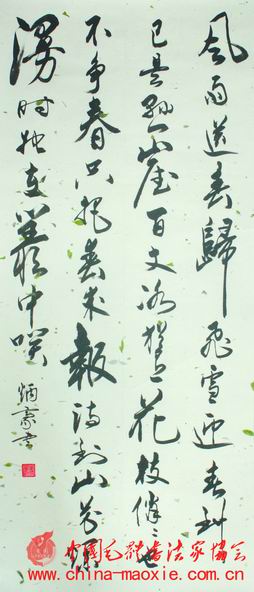 风雨送春歸飞雪迎春到
已是悬崖百丈冰犹有花枝俏〻也
不争春只把春来報待到山花爛
漫时她在叢中咲
炳豪书
中国毛体书法家协会
www.china-maoxie.com.cn